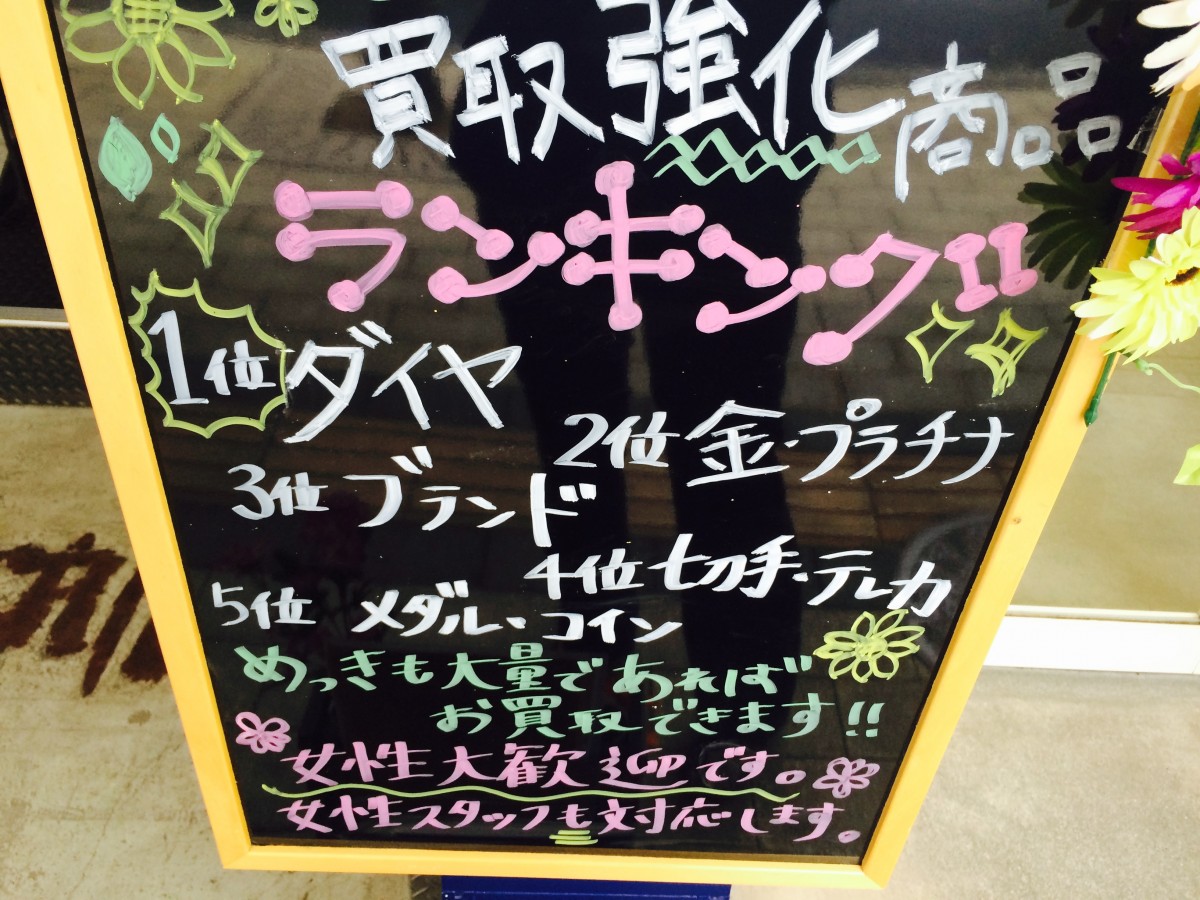 買取強化商品
ランキング!!
1位 ダイヤ
2位 金・プラチナ
3位 ブランド
4位 切手・テレカ
5位 メダル・コイン
めっきも大量であれば
お買取できます!!
女性大歓迎です。
女性スタッフも対応します。